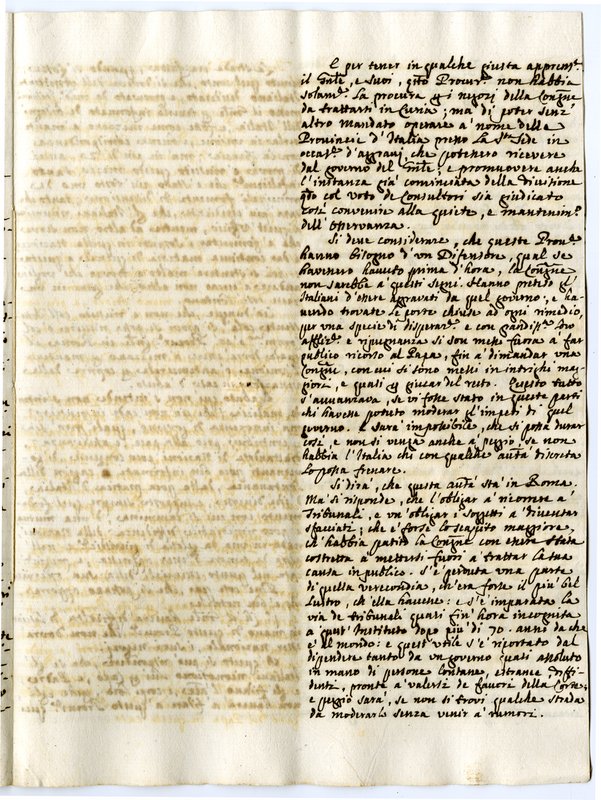 E per tener in qualche giusta apprens.e
il Gñle, e suoi, q̃sto Procur.e non habbia
solam.te la procura p̱ i negozj della Congñe
da trattarsi in Curia; ma di poter senz'
altro mandato operare a' nome delle
Provincie d'Italia presso la S.ta Sede in
occas.e d'aggravj, che potessero ricevere
dal governo del Gñle, e promuovere anche
l'instanza gia' cominciata della divisione
q̃do col voto di Consultori sia giudicato
cose convenire alla quiete, e mantenim.to
dell'Osservanza.
Si deve considerare, che queste Prov.e
hanno bisogno d'un Difensore, qual se
havessero havuto prima d'hora, la Congñe
non sarebbe a' questi segni. Hanno preteso gl'
Italiani d'essere aggravati da quel governo, e ha-
vendo trovate le porte chiuse ad ogni rimedio,
per una specie di disperaz.e e con grandiss.o loro
affliz.e e ripugnanza si son messi fuora a' far
publico ricorso al Papa, fin a' dimandar una
Congñe, con cui si sono messi in intrichi mag-
giori, e quasi p̱ giucar del resto. Questo tutto
s'avvanzava, se vi fosse stato in queste parti
chi havesse potuto moderar gl'impeti di quel
governo. e sara' impossibile, che si possa durar
cosi', e non si venga anche a' peggio, se non
habbia l'Italia chi con qualche autt.a discreta
lo possa frenare.
Si dira', che questa autt.a sta' in Roma.
Ma si risponde, che l'obligar a' ricorrere a'
Tribunali, e un'obligar i soggetti a' diventar
sfacciati; che e' forse lo scapito maggiore,
ch'habbia patito la Congñe con essere stata
costretta a' mettersi fuori a' trattar la sua
causa in publico. S'e' perduta una parte
di quella verecondia, ch'era forse il piu' bel
lustro, ch'ella havesse: e s'e' imparata la
via de tribunali quasi fin'hora incognita
a' quest'Instituto dopo piu' di 70. anni da che
e' al mondo: e quest'utile s'e' riportato dal
dipendere tanto da un governo quasi assoluto
in mano di persone lontane, estranee, diffi-
denti, pronte a' valersi de favori della Corte;
e peggio sara', se non si trovi qualche strada
da moderarlo senza venir a' rumori.